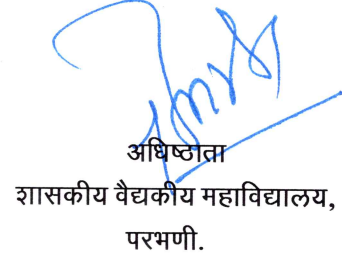 अधिष्ठाता
शासकीय वैद्यकीय महाविद्यालय,
परभणी.